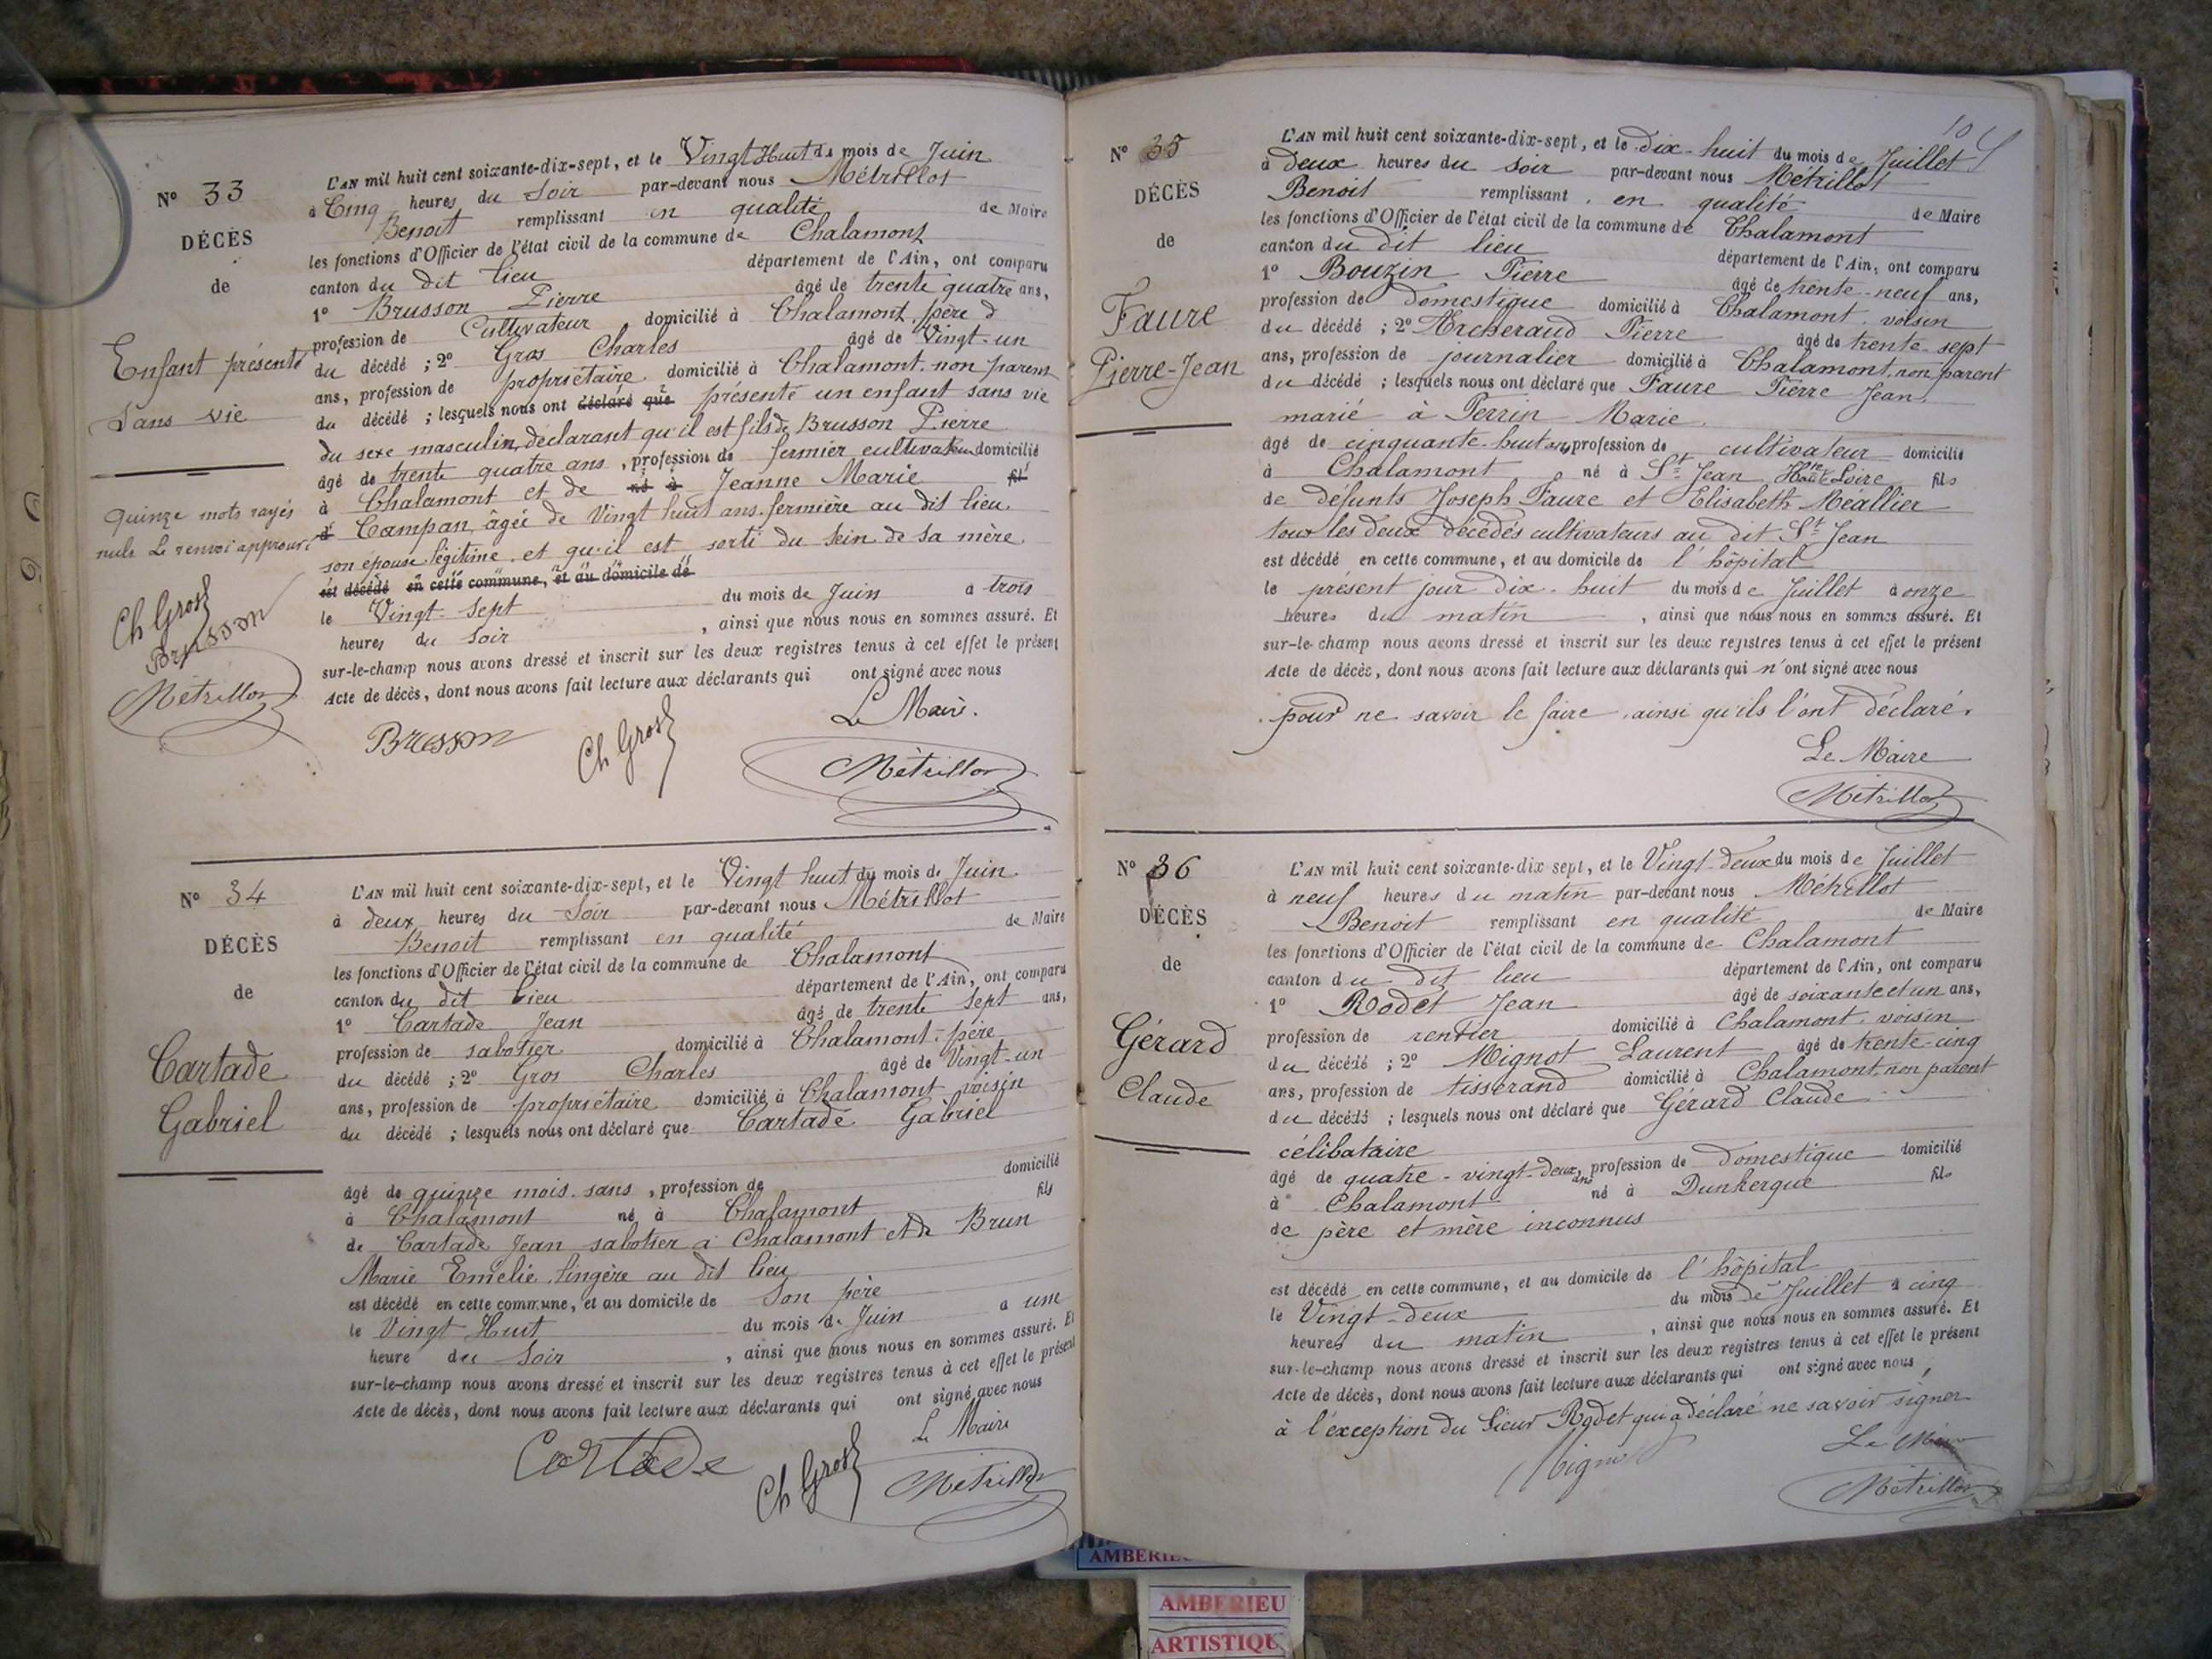 N° 33
DÉCÈS
de
Enfant présenté
Sans vie
Quinze mots rayés
nuls Le renvoi approuvé
Ch Gros
Brusson
Métrillot
L'AN mil huit cent soixante-dix-sept, et le Vingt Huit du mois de Juin
à Cinq heures du Soir par-devant nous Métrillot
Benoit remplissant en qualité de Maire
les fonctions d'Officier de l'état civil de la commune de Chalamont
canton du dit lieu département de l'Ain, ont comparu
1° Brusson Pierre âgé de trente quatre ans,
profession de Cultivateur domicilié à Chalamont, père d
du décédé ; 2° Gros Charles âgé de Vingt-un
ans, profession de propriétaire domicilié à Chalamont non parent
du décédé ; lesquels nous ont déclaré que présenté un enfant sans vie
du sexe masculin, déclarant qu'il est fils de Brusson Pierre
âgé de trente quatre ans, profession de fermier cultivateur domicilié
à Chalamont et de né à Jeanne Marie fil
d Campan, âgée de Vingt huit ans, fermière au dit lieu.
son épouse légitime, et qu'il est sorti du sein de sa mère
est décédé en cette commune, et au domicile de
le Vingt-Sept du mois de Juin à trois
heures du Soir, ainsi que nous nous en sommes assuré. Et
sur-le-champ nous avons dressé et inscrit sur les deux registres tenus à cet effet le présent
Acte de décès, dont nous avons fait lecture aux déclarants qui ont signé avec nous
Le Maire.
Brusson Ch Gros Métrillot
N° 34
DÉCÈS
de
Cartade
Gabriel
L'AN mil huit cent soixante-dix-sept, et le Vingt huit du mois de Juin
à deux heures du Soir par-devant nous Métrillot
Benoit remplissant en qualité de Maire
les fonctions d'Officier de l'état civil de la commune de Chalamont
canton du dit lieu département de l'Ain, ont comparu
1° Cartade Jean âgé de trente sept ans,
profession de sabotier domicilié à Chalamont, père
du décédé ; 2° Gros Charles âgé de Vingt-un
ans, profession de propriétaire domicilié à Chalamont voisin
du décédé ; lesquels nous ont déclaré que Cartade Gabriel
âgé de quinze mois sans, profession de domicilié
à Chalamont né à Chalamont fils
de Cartade Jean sabotier à Chalamont et de Brun
Marie Emélie, lingère au dit lieu
est décédé en cette commune, et au domicile de son père
le Vingt Huit du mois de Juin à une
heure du Soir, ainsi que nous nous en sommes assuré. Et
sur-le-champ nous avons dressé et inscrit sur les deux registres tenus à cet effet le présent
Acte de décès, dont nous avons fait lecture aux déclarants qui ont signé avec nous
Le Maire
Cartade Ch Gros Métrillot
10
N° 35
DÉCÈS
de
Faure
Pierre-Jean
L'AN mil huit cent soixante-dix-sept, et le dix-huit du mois de Juillet
à deux heures du soir par-devant nous Métrillot
Benoit remplissant en qualité de Maire
les fonctions d'Officier de l'état civil de la commune de Chalamont
canton du dit lieu département de l'Ain, ont comparu
1° Bouzin Pierre âgé de trente-neuf ans,
profession de Domestique domicilié à Chalamont, voisin
du décédé ; 2° Archeraud Pierre âgé de trente-sept
ans, profession de journalier domicilié à Chalamont, non parent
du décédé ; lesquels nous ont déclaré que Faure Pierre Jean,
marié à Perrin Marie,
âgé de cinquante-huit ans, profession de cultivateur domicilié
à Chalamont né à St Jean Hte Loire fils
de défunts Joseph Faure et Elisabeth Méallier
tous les deux décédés cultivateurs au dit St Jean
est décédé en cette commune, et au domicile de l'hôpital
le présent jour dix-huit du mois de Juillet à onze
heures du matin, ainsi que nous nous en sommes assuré. Et
sur-le-champ nous avons dressé et inscrit sur les deux registres tenus à cet effet le présent
Acte de décès, dont nous avons fait lecture aux déclarants qui n'ont signé avec nous
pour ne savoir le faire, ainsi qu'ils l'ont déclaré.
Le Maire
Métrillot
N° 36
DÉCÈS
de
Gérard
Claude
L'AN mil huit cent soixante-dix-sept, et le Vingt-deux du mois de Juillet
à neuf heures du matin par-devant nous Métrillot
Benoit remplissant en qualité de Maire
les fonctions d'Officier de l'état civil de la commune de Chalamont
canton du dit lieu département de l'Ain, ont comparu
1° Rodet Jean âgé de soixante et un ans,
profession de rentier domicilié à Chalamont, voisin
du décédé ; 2° Mignot Laurent âgé de trente-cinq
ans, profession de tisserand domicilié à Chalamont, non parent
du décédé ; lesquels nous ont déclaré que Gérard Claude
célibataire
âgé de quatre-vingt-deux ans, profession de Domestique domicilié
à Chalamont né à Dunkerque fils
de père et mère inconnus
est décédé en cette commune, et au domicile de l'hôpital
le Vingt-deux du mois de Juillet à cinq
heures du matin, ainsi que nous nous en sommes assuré. Et
sur-le-champ nous avons dressé et inscrit sur les deux registres tenus à cet effet le présent
Acte de décès, dont nous avons fait lecture aux déclarants qui ont signé avec nous,
à l'exception du Sieur Rodet qui a déclaré ne savoir signer
Le Maire
Mignot Métrillot
AMBERIEU
ARTISTIQU